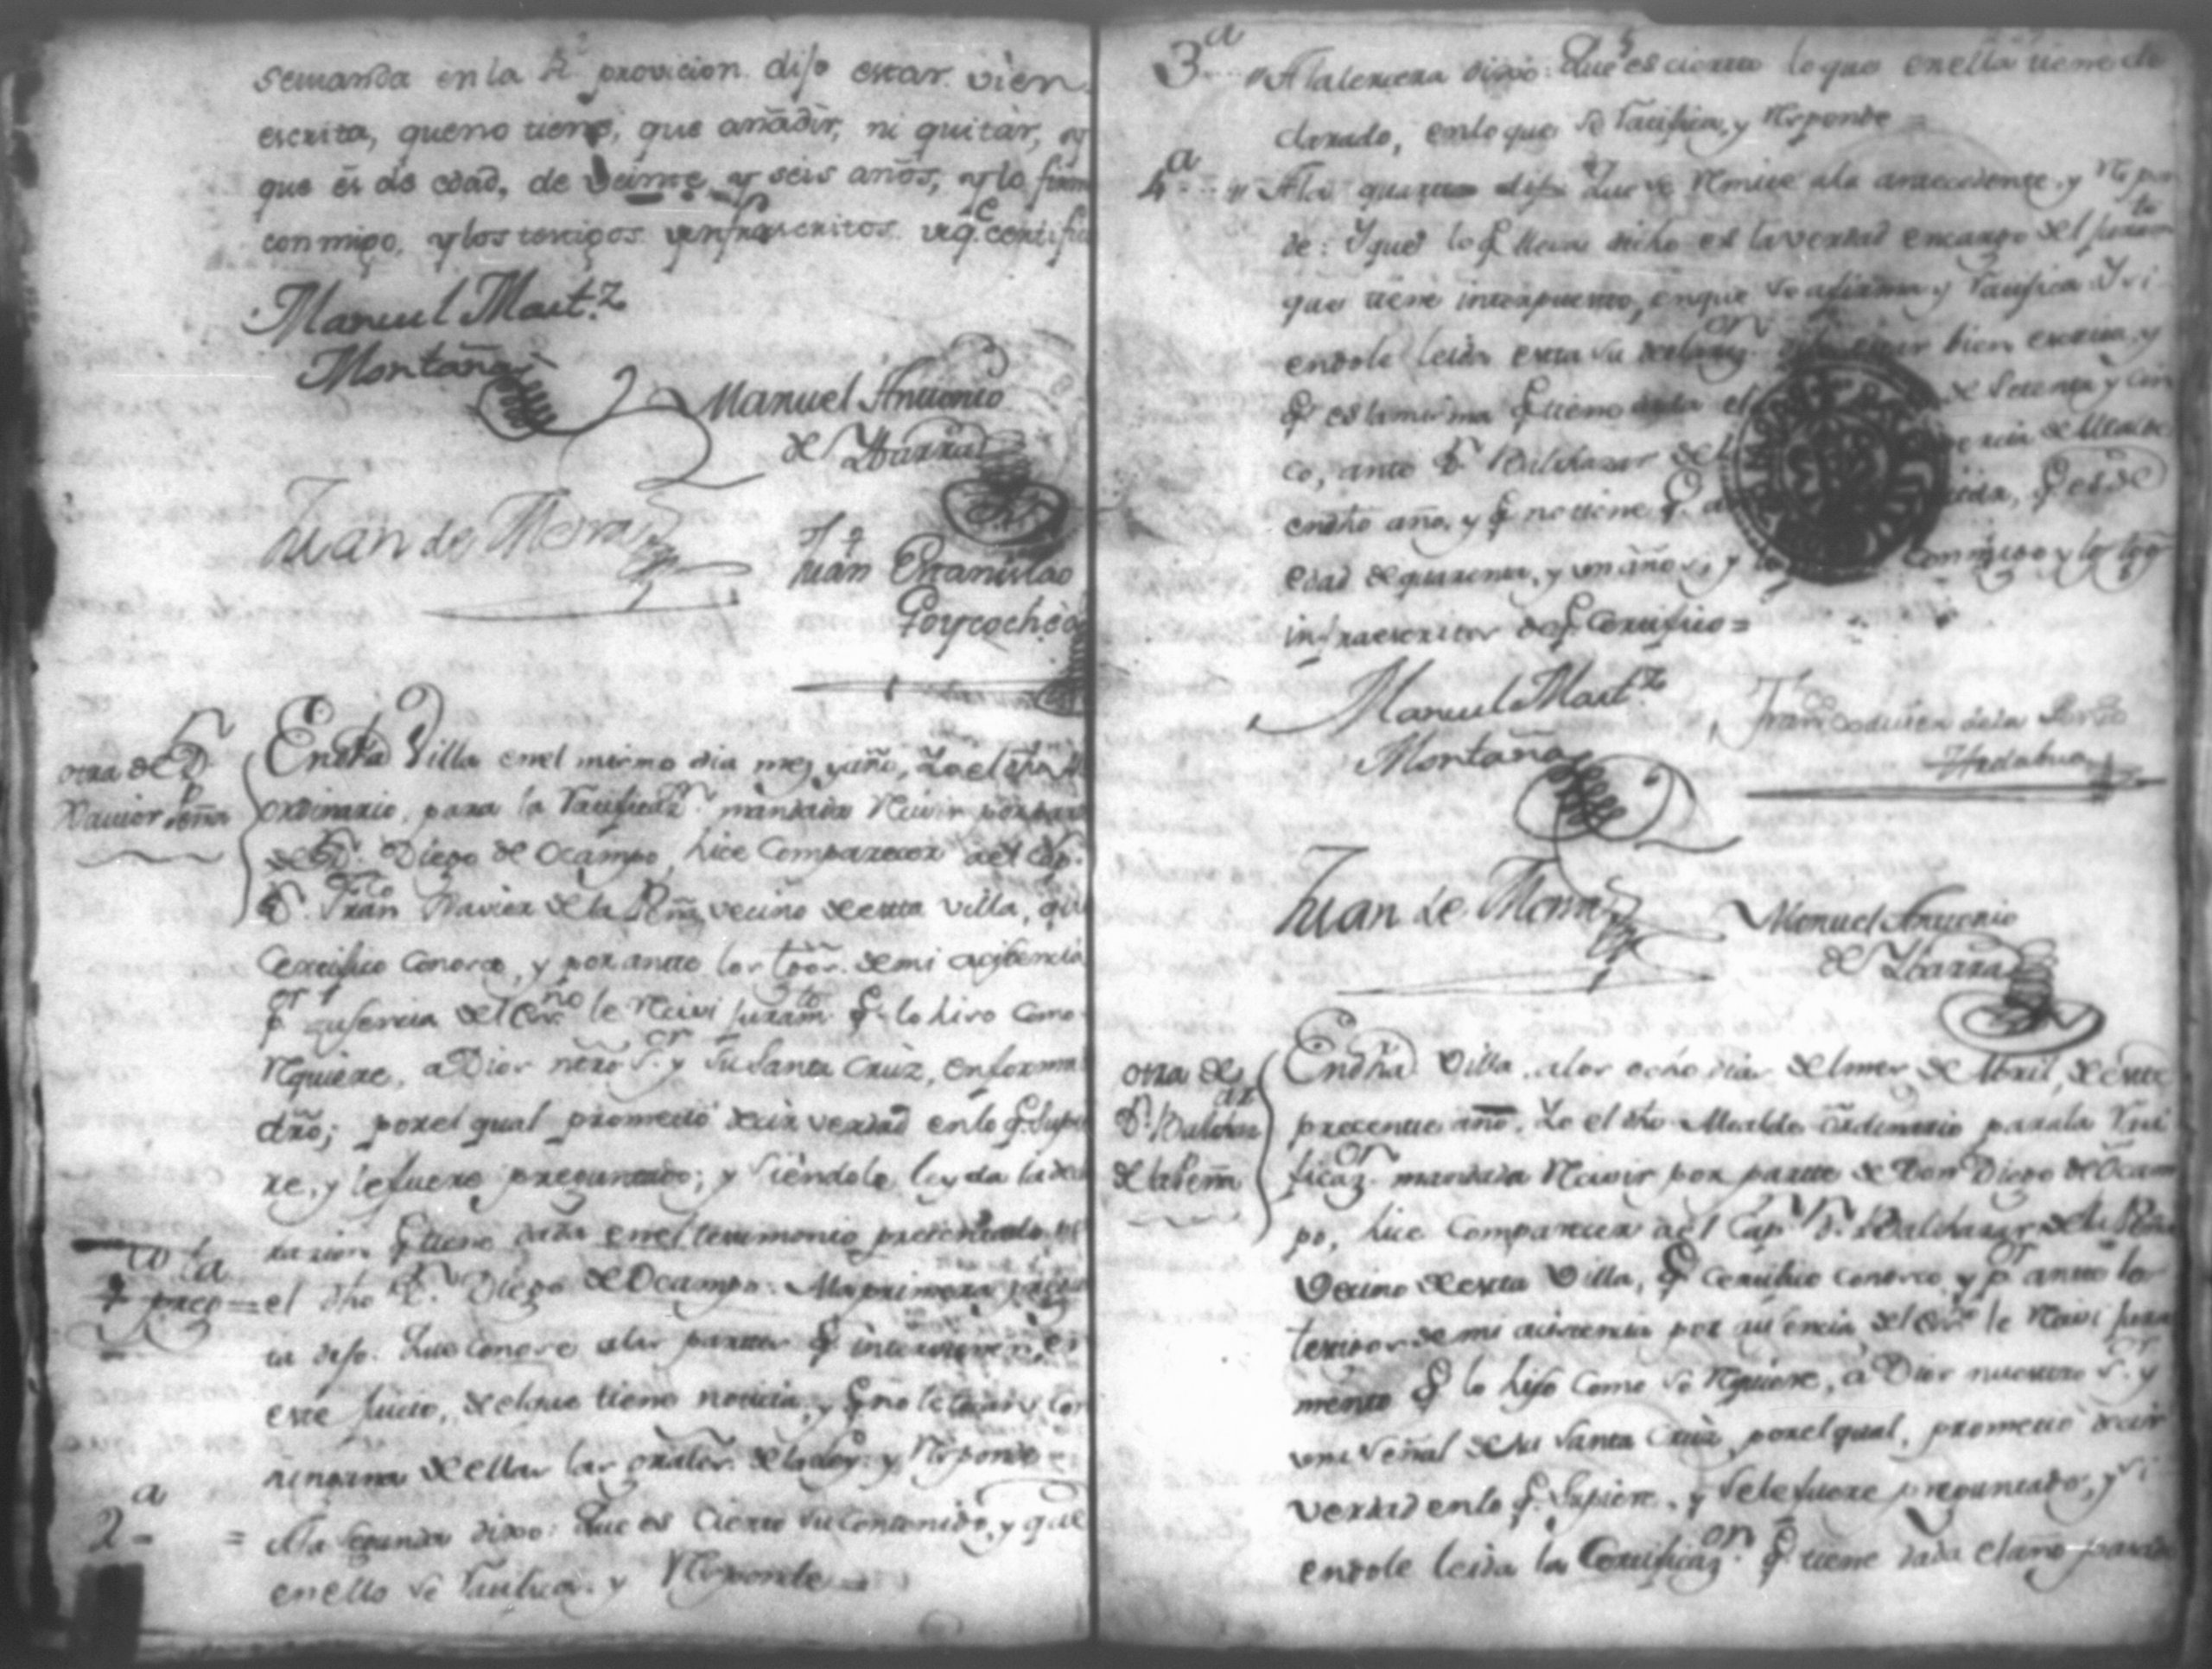 semanda en la Rl. provicion. dijo estar vien
escrita, queno tiene, que añadir, ni quitar, y
que es de edad, de veinte y seis años, y lo firm
conmigo, y los testigos ynfraescritos. deq.e certifi
Manuel Mart.z
Montaña
Manuel Antonio
de Ybarra
Juan de Mena
tgo
Juan Estanislao
Goycochea
otra de Dn
Xavier Peña
En dha Villa en el mismo dia mes y año, Yo el dho Al
ordinario, para la ratificazn. mandada recivir por par
de Dn. Diego de Ocampo, hice comparecer a el Cap.n
Dn. Franco Xavier de la Peña vecino de esta villa, que
Certifico conosco, y por ante los tgos. de mi asistencia
por ausencia del Essno le recivi juramto q. lo hizo como
requiere, a Dios nro Sor. y su Santa Cruz, en forma
dro; por el qual prometio decir verdad en lo q. supie
re, y le fuere preguntado; y siendole leyda la decla
razion q. tiene dada en el testimonio presentado
1a preg = el dho Dn. Diego de Ocampo. A la primera pregun
ta dijo. Que conose a las partes q. intervienen, en
este juicio, de el que tiene noticia, y q. no le tocan con
ninguna de ellas las grales. de la ley y responde =
2a = A la segunda dixo: Que es cierto su contenido, y que
en ello se ratifica. y responde =
3a A la tercera dixo: Que es cierto lo que en ella tiene de
clarado, en lo que se ratifica, y responde =
4a A la quarta dijo Que se remite a la antecedente, y respon
de: Y que lo q. lleva dicho es la verdad en cargo del juramto
que tiene interpuesto, en que se afirma y ratifica Y si
endole leida esta su declarazon. dijo estar bien escrita, y
q. es la misma q. tiene dada el de setenta y cin
co, ante Dn. Balthazar de la de Alcalde
en dho año, y q. no tiene q. a q. es de
edad de quarenta, y un años, y lo conmigo y los tgos
infraescritos deq. Certifico =
Manuel Mart.z
Montaña
Juan de Mena
Manuel Antonio
de Ybarra
otra de
Dn. Balthar
de la Peña
En dha Villa, a los ocho dias de el mes de Abril, de este
precente año. Yo el dho Alcalde Ordinario para la rati
ficazon. mandada recivir por parte de Don Diego de Ocam
po, hice comparecer a el Capn. Dn. Balthazar de la Peña
vecino de esta Villa, q. certifico conosco, y por ante los
testigos de mi asistencia por ausencia del Essno le recivi jura
mento q. lo hiso como se requiere, a Dios nuestro Sor. y
una Señal de su Santa Cruz, por el qual, prometio decir
verdad en lo q. supiere, y se le fuere preguntado, y si
endole leida la Certificazon. q. tiene dada el año pasado